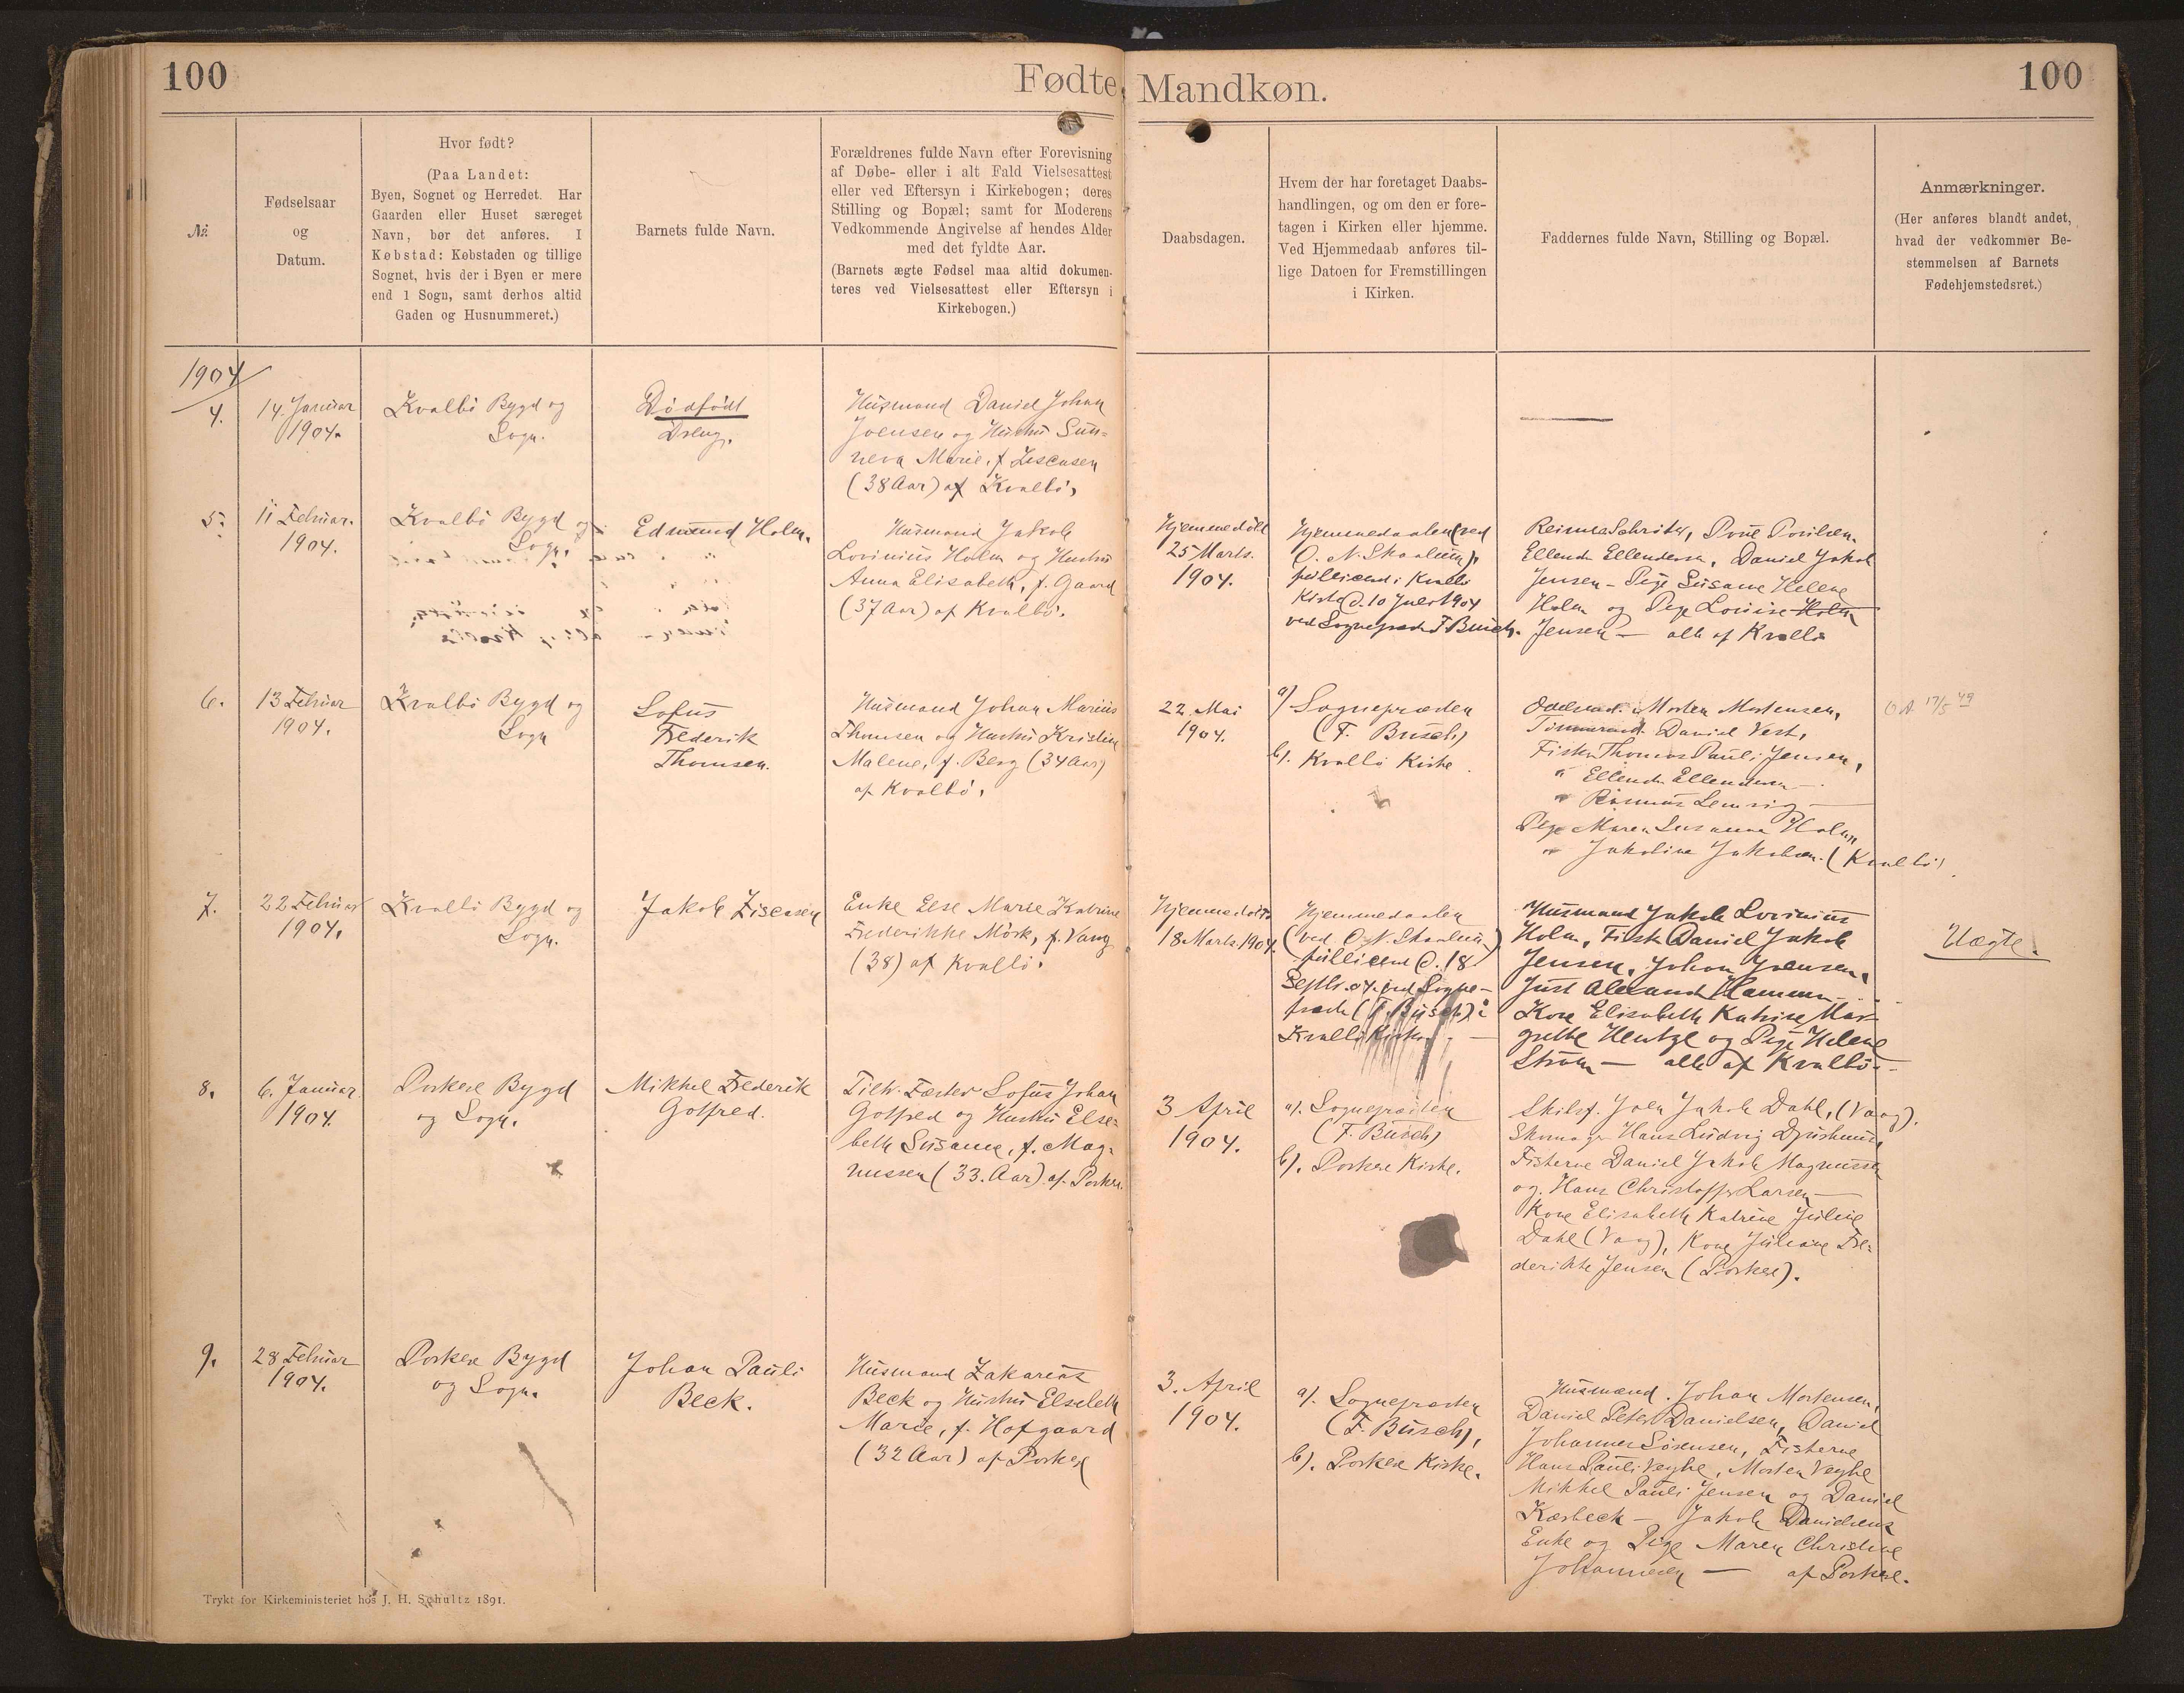 100
Fødte, Mandkøn.
100
№.
Fødselsaar
og
Datum.
Hvor født?
(Paa Landet:
Byen, Sognet og Herredet. Har
Gaarden eller Huset særeget
Navn, bør det anføres. I
Købstad: Købstaden og tillige
Sognet, hvis der i Byen er mere
end 1 Sogn, samt derhos altid
Gaden og Husnummeret.)
Barnets fulde Navn.
Forældrenes fulde Navn efter Forevisning
af Døbe- eller i alt Fald Vielsesattest
eller ved Eftersyn i Kirkebogen; deres
Stilling og Bopæl; samt for Moderens
Vedkommende Angivelse af hendes Alder
med det fyldte Aar.
(Barnets ægte Fødsel maa altid dokumen-
teres ved Vielsesattest eller Eftersyn i
Kirkebogen.)
Daabsdagen.
Hvem der har foretaget Daabs-
handlingen, og om den er fore-
tagen i Kirken eller hjemme.
Ved Hjemmedaab anføres til-
lige Datoen for Fremstillingen
i Kirken.
Faddernes fulde Navn, Stilling og Bopæl.
Anmærkninger.
(Her anføres blandt andet,
hvad der vedkommer Be-
stemmelsen af Barnets
Fødehjemstedsret.)
1904
4.
14. Januar
1904.
Kvalbö Bygd og
Sogn.
Dödfödt
Dreng.
Husmand Daniel Johan
Joensen og Hustru Sun-
neva Marie, f.
(38 Aar) af Kvalbö.
5.
11 Februar.
1904.
Kvalbö Bygd og
Sogn.
Edmund Holm.
Husmand Jakob
Lovinius Holm og Hustru
Anna Elisabeth, f. Gaard
(37 Aar) af Kvalbö.
Hjemmedöbt
25 Marts.
1904.
Hjemmedaaben (ved
O. N. Skaalum),
publiceret i Kvalbö
Kirke d. 10 Juli 1904
ved Sognepræsten F. Busch.
Poul Poulsen.
Ellendersen, Daniel Jakob
Jensen - Pige Susanne Helene
Holm og Pige Louise Holm
Jensen — alle af Kvalbö
6.
13 Februar
1904.
Kvalbö Bygd og
Sogn
Sofus
Frederik
Thomsen.
Husmand Johan Marius
Thomsen og Hustru Kristin
Malene, f. Berg (34 Aar)
af Kvalbö.
22. Mai
1904.
a) Sognepræsten
(F. Busch)
b). Kvalbö Kirke.
Morten Mortensen,
Daniel Vest,
Fisker Thomas Pauli Jensen,
" Ellendersen —
" Rasmus Lemvig —
Pige Maren Susanna Holm
" Jakobine Jakobsen. (Kvalbö).
17/5 49
7.
22 Februar
1904.
Kvalbö Bygd og
Sogn.
Jakob
Enke Else Marie Katrine
Frederikke Mörk, f. Vang
(38) af Kvalbö.
Hjemmedöbt
18 Marts 1904.
Hjemmedaaben
(ved O. N. Skaalum)
publiceret d. 18
Septb. 04. ved Sogne-
præsten (F. Busch) i
Kvalbö Kirke.
Husmand Jakob Lovinius
Holm, Fisker Daniel Jakob
Jensen, Johan Joensen,
Just
Kone Elisabeth Katrine Mar-
grethe Hentze og Pige Helene
Ström — alle af Kvalbö —
Uægte.
8.
6. Januar
1904.
Porkere Bygd
og Sogn.
Mikkel Frederik
Gotfred.
Fæster Sofus Johan
Gotfred og Hustru Else-
beth Susanne, f. Mag-
nussen (33. Aar) af Porkere.
3 April
1904.
a). Sognepræsten
(F. Busch)
b). Porkere Kirke.
Joen Jakob Dahl, (Vaag).
Skomager Hans Ludvig Djurhuus,
Fiskerne Daniel Jakob Magnussen
og Hans Christoffer Larsen —
Kone Elisabeth Katrine Julie
Dahl (Vaag), Kone Juliane Fre-
derikke Jensen (Porkere).
9.
28 Februar
1904.
Porkere Bygd
og Sogn.
Johan Pauli
Beck.
Husmand Zakarias
Beck og Hustru Elsebeth
Marie, f. Hofgaard
(32 Aar) af Porkere
3. April
1904.
a). Sognepræsten
(F. Busch),
b). Porkere Kirke.
Husmænd. Johan Mortensen,
Daniel Peter Danielsen, Daniel
Johannes Sörensen, Fiskerne
Hans Pauli Veyhe, Morten Veyhe
Mikkel Pauli Jensen og Daniel
Kærbeck — Jakob Danielsens
Enke og Pige Maren Christine
Johannesen — af Porkere.
Trykt for Kirkeministeriet hos J. H. Schultz 1891.